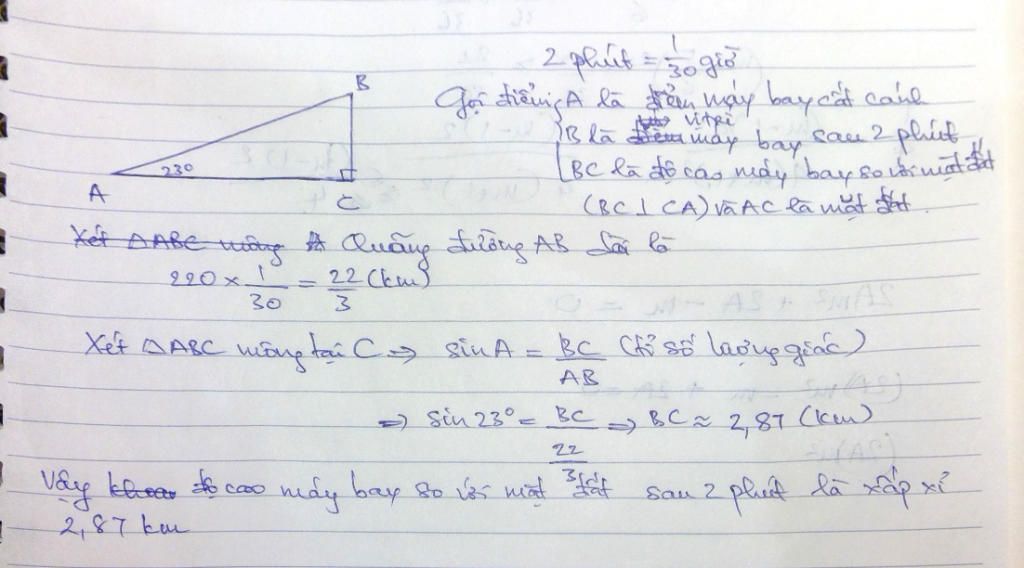 2 phút = 1/30 giờ
Gọi điểm A là điểm máy bay cất cánh
B là vị trí máy bay sau 2 phút
BC là độ cao máy bay so với mặt đất
(BC ⊥ CA) và AC là mặt đất.
B
A
23°
C
Xét ΔABC vuông Quãng đường AB dài là
220 × 1/30 = 22/3 (km)
Xét ΔABC vuông tại C ⇒ sin A = BC/AB (tỉ số lượng giác)
⇒ sin 23° = BC/(22/3) ⇒ BC ≈ 2,87 (km)
Vậy độ cao máy bay so với mặt đất sau 2 phút là xấp xỉ
2,87 km